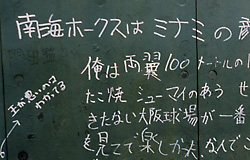 南海ホークスはミナミの
俺は両翼100メートルの
たこ焼 シューマイのあう せ
きたない大阪球場が一番
を見てて楽しかった なんで
わかってる